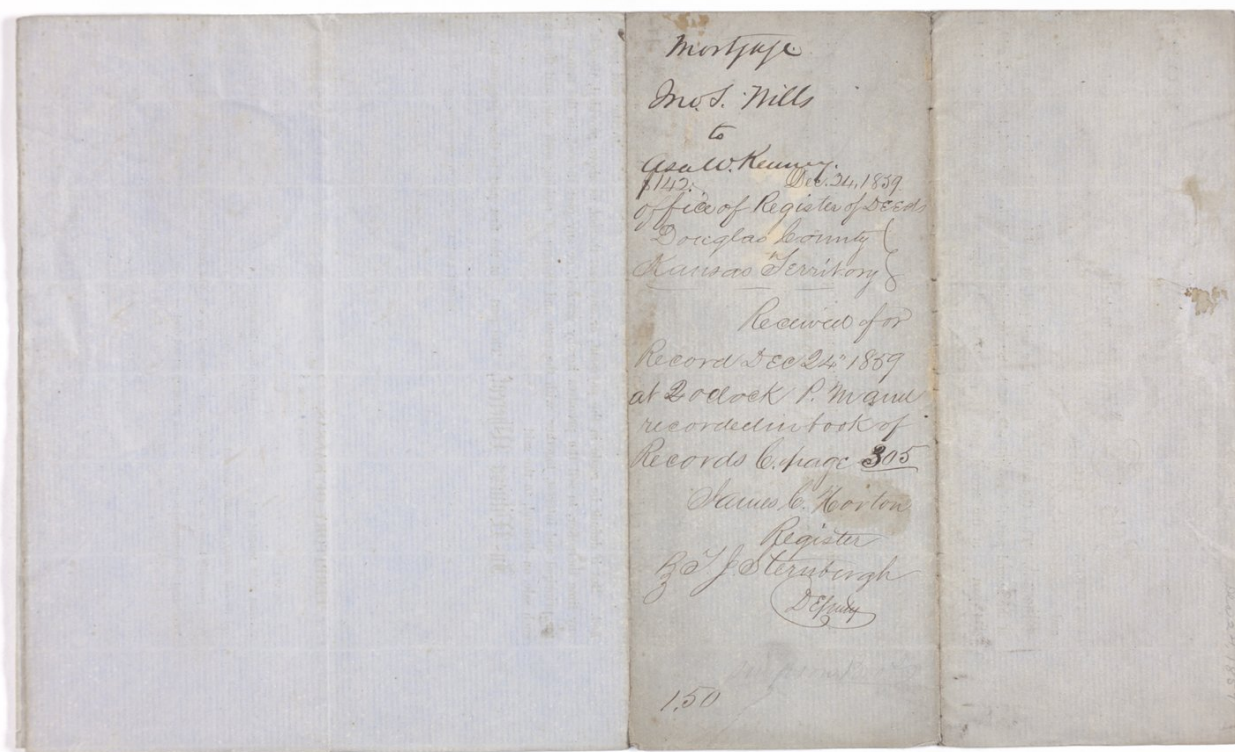 Mortgage
Jno. S. Wills
to
Asa W. Kenney.
$142. Dec. 24, 1859
Office of Register of Deeds
Douglas County
Kansas Territory
Received for
Record Dec 24" 1859
at 2 oclock P. M and
recorded in book of
Records C. page 305
James C. Horton
Register
By T. J. Sternbergh
Deputy
1.50